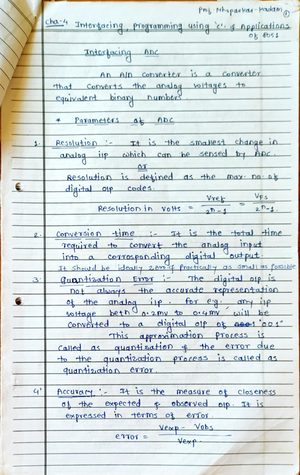 Prof. Nhaparkar-Kadam ①
Cha-4 Interfacing, programming using 'c' & Applications
of 8051
Interfacing ADC
An A/D converter is a converter
that converts the analog voltages to
equivalent binary numbers.
* Parameters of ADC
1. Resolution :- It is the smallest change in
analog i/p which can be sensed by ADC
OR
Resolution is defined as the max. no. of
digital o/p codes.
Resolution in volts = Vref / 2^n-1 = VFS / 2^n-1
2. Conversion time :- It is the total time
required to convert the analog input
into a corresponding digital output.
It should be ideally zero & practically as small as possible
3. Quantization Error :- The digital o/p is
not always the accurate representation
of the analog i/p. For eg. any i/p
voltage betn 0.2mv to 0.4mv will be
converted to a digital o/p of '001'
This approximation process is
called as quantisation & the error due
to the quantization process is called as
quantization error.
4. Accuracy :- It is the measure of closeness
of the expected & observed o/p. It is
expressed in terms of error
error = Vexp - Vobs / Vexp.